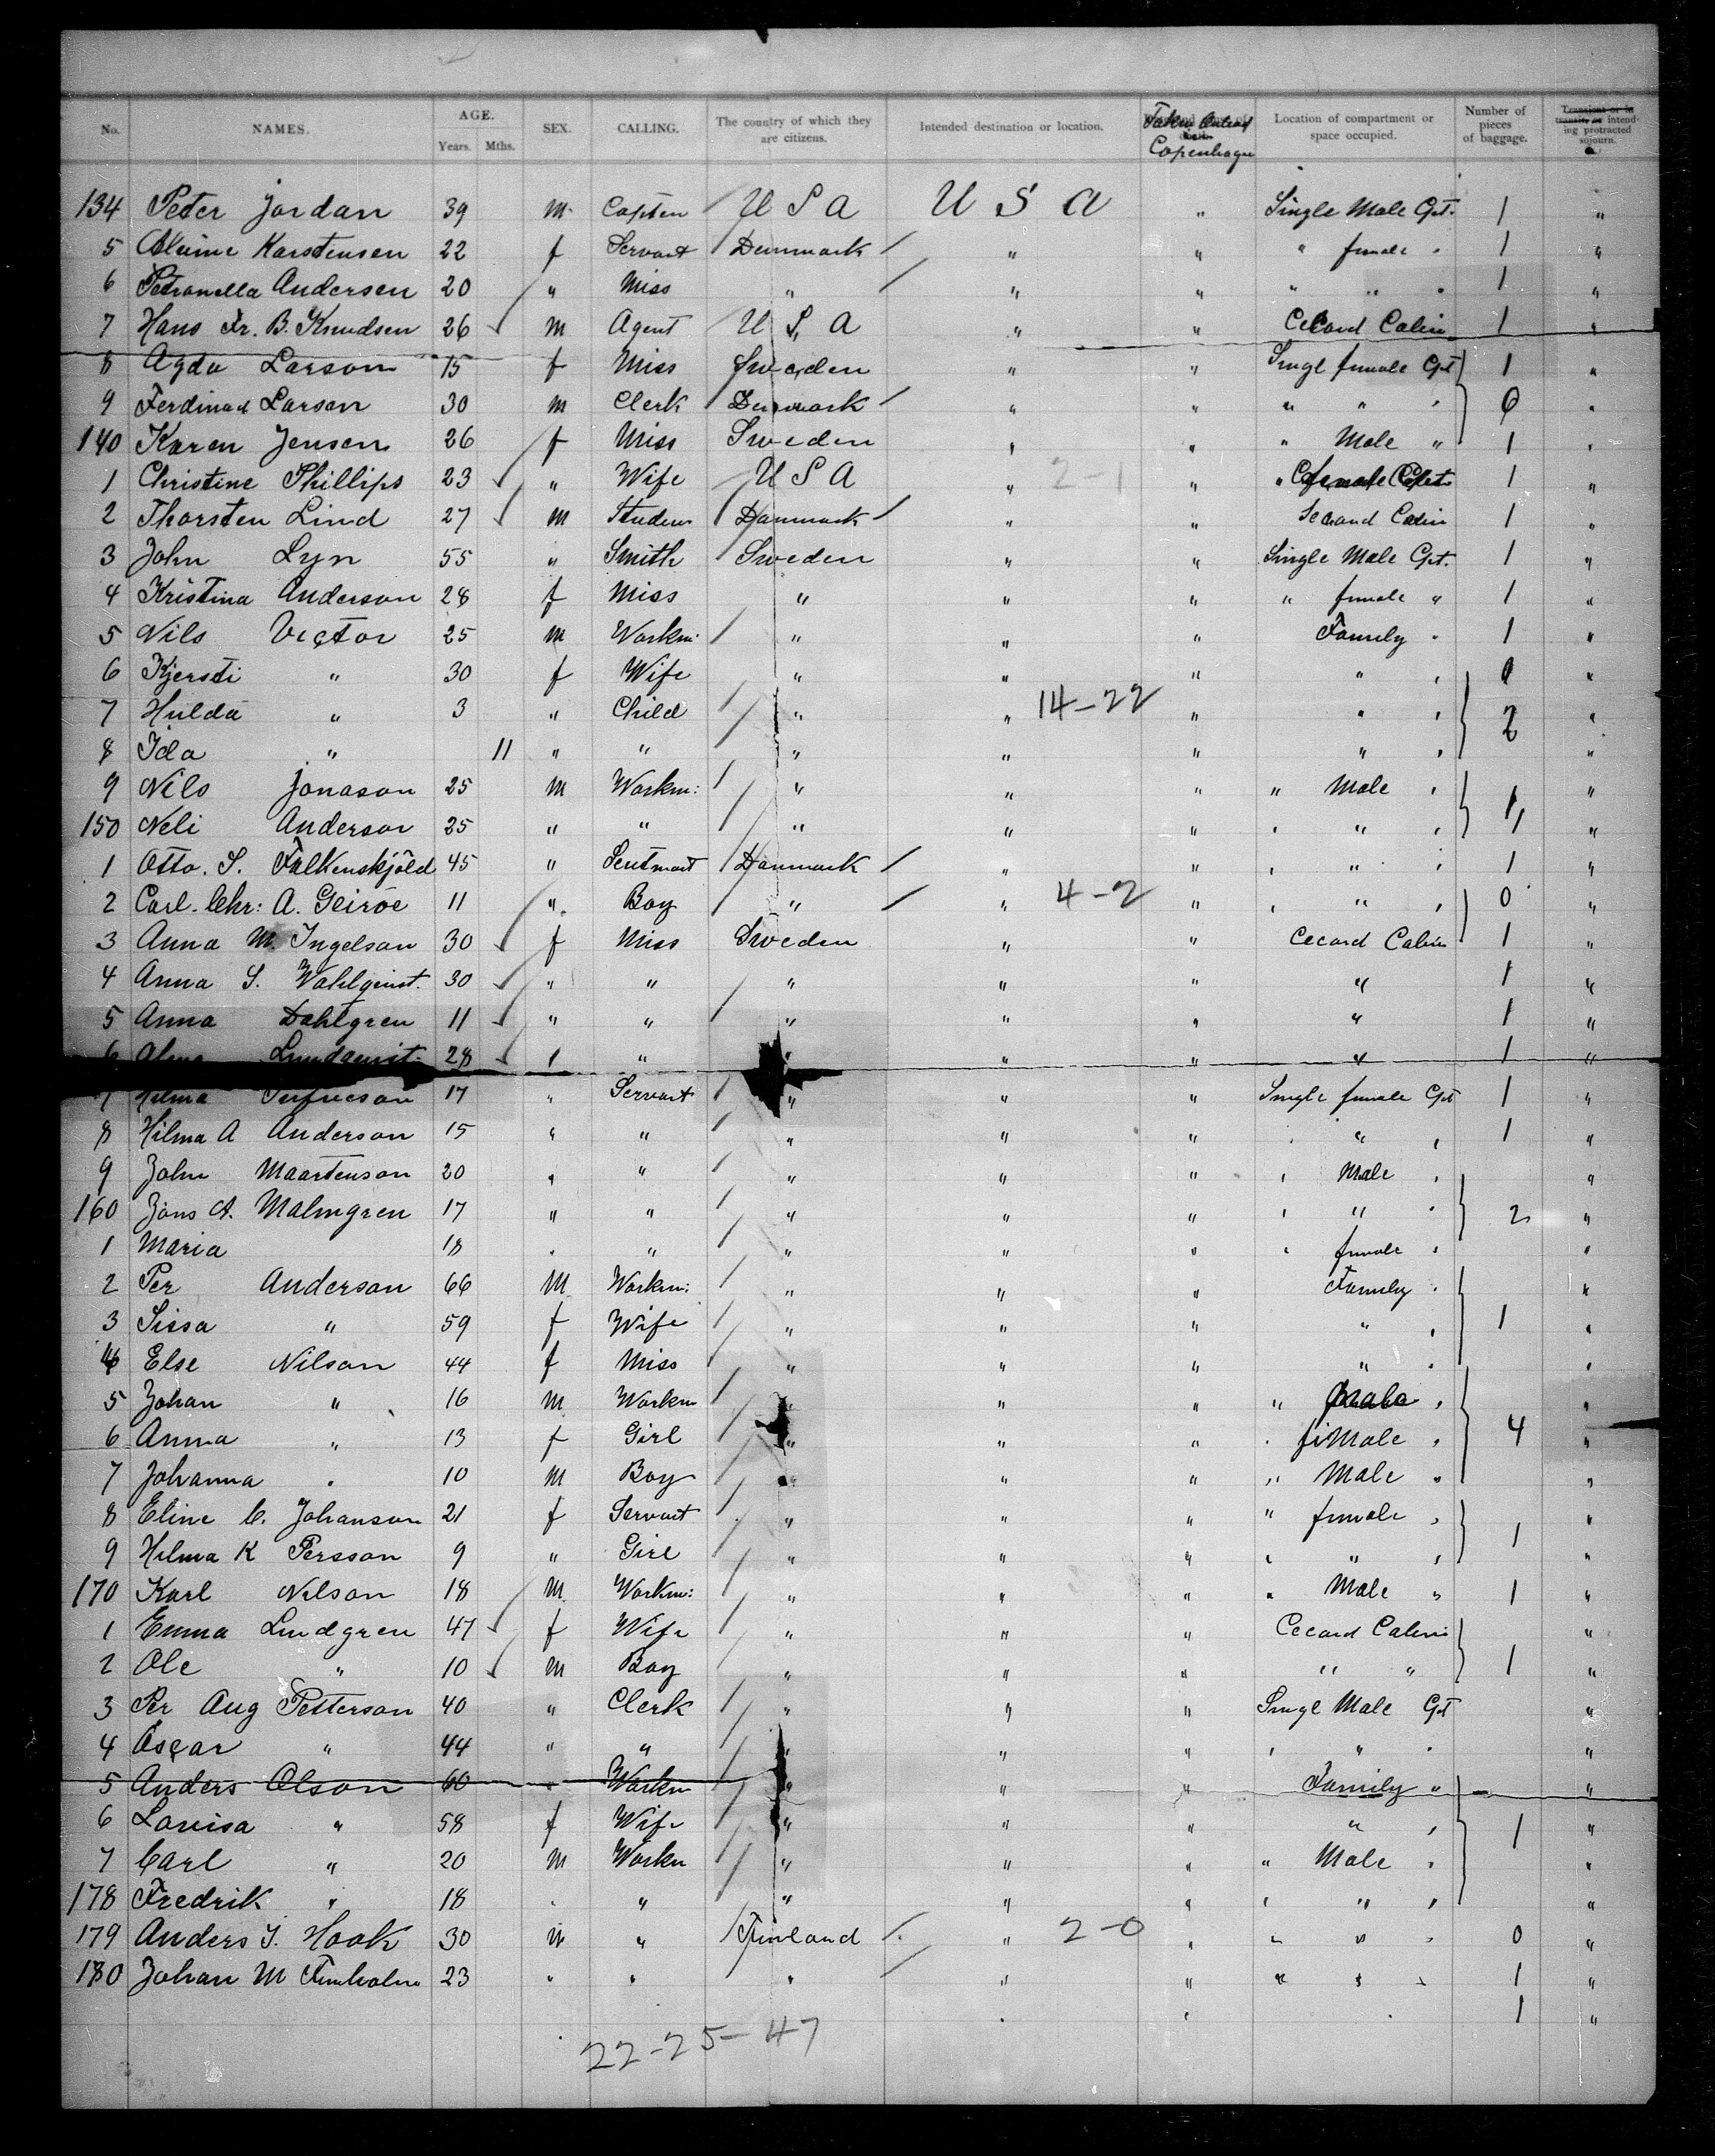 No. NAMES. AGE. Years. Mths. SEX. CALLING. The country of which they are citizens. Intended destination or location. Taken in Copenhagen Location of compartment or space occupied. Number of pieces of baggage. Transient or in transit or intending protracted sojourn.
134 Peter Jordan 39 m Capten U S A U S A " Single Male Cpt. 1 "
5 Karstensen 22 f Servant Denmark " " " female " 1 "
6 Petranella Andersen 20 " Miss " " " " " " 1 "
7 Hans Fr. B. Knudsen 26 m Agent U S A " " Cecond Cabin 1 "
8 Agda Larson 15 f Miss Sweden " " Singl female Cpt 1 "
9 Ferdinad Larsen 30 m Clerk Denmark " " " " " 0 "
140 Karen Jensen 26 f Miss Sweden " " " Male " 1 "
1 Christine Phillips 23 " Wife U S A " 2-1 " " female Cpt 1 "
2 Thorsten Lind 27 m Studen Danmark " " Second Cabin 1 "
3 John Lyn 55 " Smith Sweden " " Single Male Cpt. 1 "
4 Kristina Anderson 28 f Miss " " " " female " 1 "
5 Nils Victor 25 m Workm: " " " Family " 1 "
6 Kjersti " 30 f Wife " " " " " 0 "
7 Hulda " 3 " Child " " 14-22 " " " 2 "
8 Ida " 11 " " " " " " " "
9 Nils Jonason 25 m Workm: " " " " Male " 1 "
150 Neli Anderson 25 " " " " " " " " 1 "
1 Otto. S. Falkenskjöld 45 " Leutmant Danmark " " " " " 1 "
2 Carl. Chr: A. Geiröe 11 " Boy " " 4-2 " " " " 0 "
3 Anna M. Ingelson 30 f Miss Sweden " " Cecond Cabin 1 "
4 Anna S. Wahlqinst. 30 " " " " " " 1 "
5 Anna Dahlgren 11 " " " " " " 1 "
6 Alma Lundquist 28 " " " " " " 1 "
7 Hilma 17 " Servant " " " Single female Cpt 1 "
8 Hilma A Anderson 15 " " " " " " " " 1 "
9 John Maartenson 20 " " " " " " Male " "
160 Jöns A. Malmgren 17 " " " " " " " " 2 "
1 Maria 18 " " " " " " female " "
2 Per Anderson 66 M Workm: " " " Family " "
3 Sissa " 59 f Wife " " " " " 1 "
4 Else Nilson 44 f Miss " " " " " "
5 Johan " 16 m Workm " " " " Male " "
6 Anna " 13 f Girl " " " " fiMale " 4 "
7 Johanna " 10 m Boy " " " " Male " "
8 Eline C. Johanson 21 f Servant " " " " female " "
9 Hilma K Persson 9 " Girl " " " " " " 1 "
170 Karl Nilson 18 M Workm: " " " " Male " 1 "
1 Emma Lindgren 47 f Wife " " " Cecond Cabin "
2 Ole " 10 m Boy " " " " " 1 "
3 Per Aug Petterson 40 " Clerk " " " Singl Male Cpt "
4 Oscar " 44 " " " " " " " " "
5 Anders Olson 60 " Workm " " " Family " "
6 Lovisa " 58 f Wife " " " " " 1 "
7 Carl " 20 m Workm " " " " Male " "
178 Fredrik " 18 " " " " " " " " "
179 Anders J. Hook 30 m " Finland " 2-0 " " " " 0 "
180 Johan M 23 " " " " " " " " 1 "
" " " 1 "
22-25-47